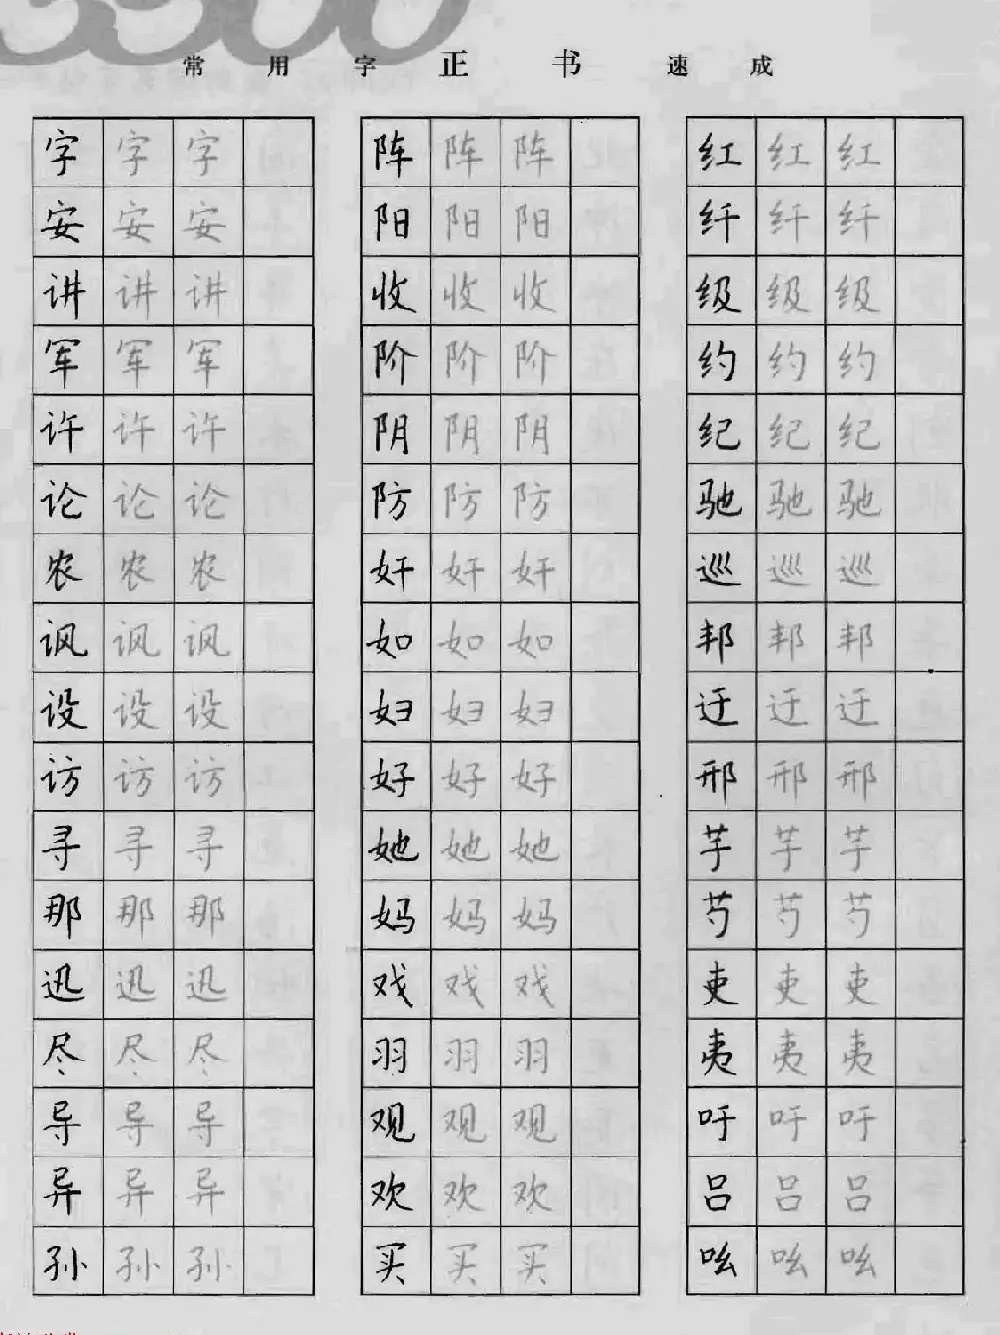 3500
常用字正书速成
字字字 阵阵阵 红红红
安安安 阳阳阳 纤纤纤
讲讲讲 收收收 级级级
军军军 阶阶阶 约约约
许许许 阴阴阴 纪纪纪
论论论 防防防 驰驰驰
农农农 奸奸奸 巡巡巡
讽讽讽 如如如 邦邦邦
设设设 妇妇妇 迂迂迂
访访访 好好好 邢邢邢
寻寻寻 她她她 芋芋芋
那那那 妈妈妈 芍芍芍
迅迅迅 戏戏戏 吏吏吏
尽尽尽 羽羽羽 夷夷夷
导导导 观观观 吁吁吁
异异异 欢欢欢 吕吕吕
孙孙孙 买买买 吆吆吆